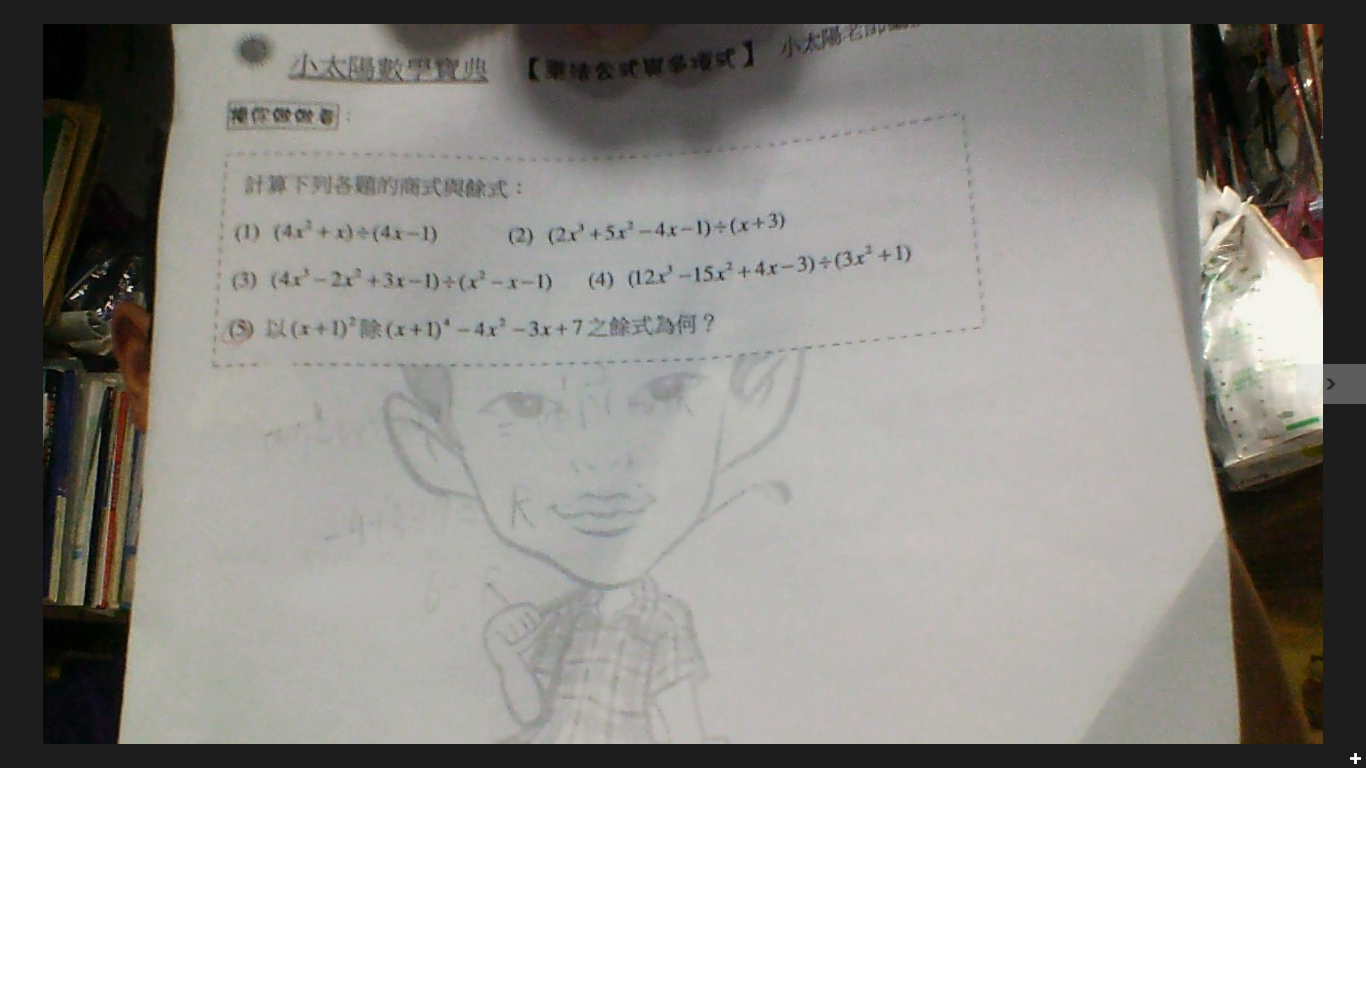 小太陽數學寶典 【乘法公式與多項式】 小太陽老師
換你做做看：
計算下列各題的商式與餘式：
(1) (4x²+x)÷(4x−1) (2) (2x³+5x²−4x−1)÷(x+3)
(3) (4x³−2x²+3x−1)÷(x²−x−1) (4) (12x³−15x²+4x−3)÷(3x²+1)
(5) 以(x+1)²除(x+1)⁴−4x²−3x+7之餘式為何？
R